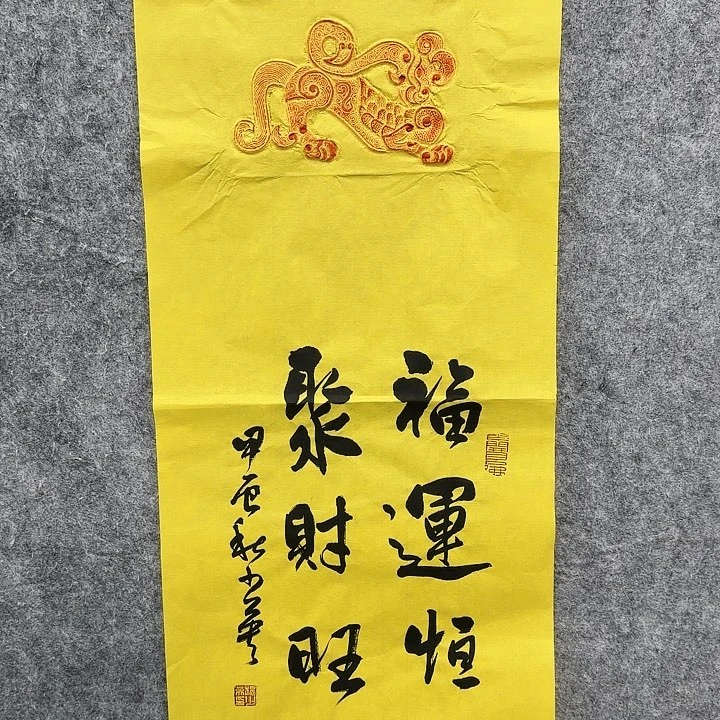 福運恒
聚財旺
甲辰秋小英